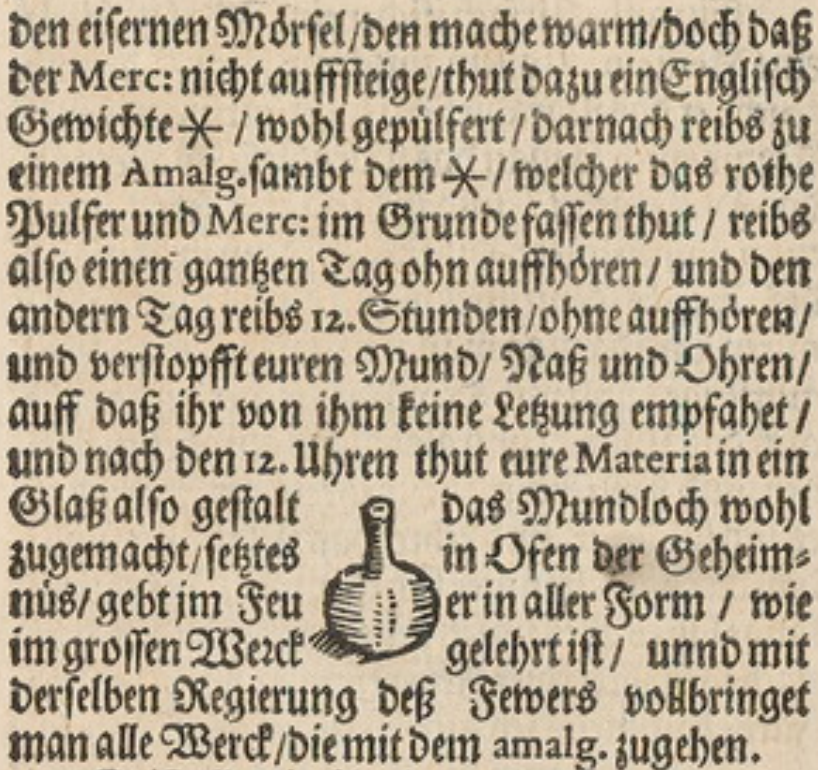 den eisernen Mörsel/den mache warm/doch daß
der Merc: nicht auffsteige/thut dazu ein Englisch
Gewichte ⚹ / wohl gepülfert / darnach reibs zu
einem Amalg. sambt dem ⚹ / welcher das rothe
Pulfer und Merc: im Grunde fassen thut / reibs
also einen gantzen Tag ohn auffhören / und den
andern Tag reibs 12. Stunden/ohne auffhören/
und verstopfft euren Mund/ Naß und Ohren/
auff daß ihr von ihm keine Letzung empfahet /
und nach den 12. Uhren thut eure Materia in ein
Glaß also gestalt das Mundloch wohl
zugemacht/setztes in Ofen der Geheim-
nüs/ gebt jm Feu er in aller Form / wie
im grossen Werck gelehrt ist / unnd mit
derselben Regierung deß Fewers vollbringet
man alle Werck/die mit dem amalg. zugehen.